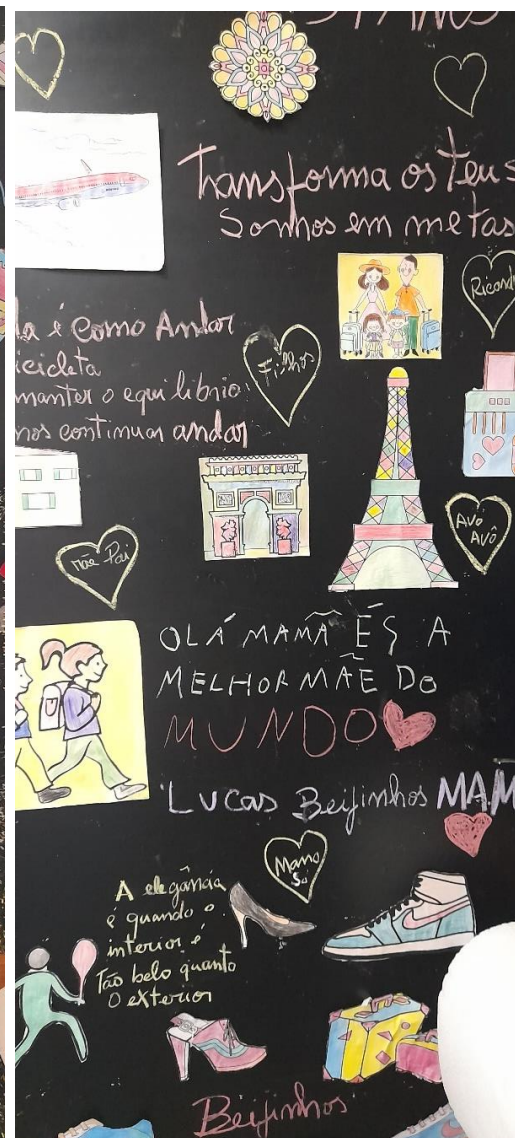 Transforma os teus
Sonhos em metas
Ricard
é como Andar
manter o equilibrio
continuar andar
Filhos
Avó
Avô
mãe Pai
OLÁ MAMÃ ÉS A
MELHOR MÃE DO
MUNDO
Lucas Beijinhos MAM
Mano
A elegância
é quando o
interior é
Tão belo quanto
O exterior
Beijinhos